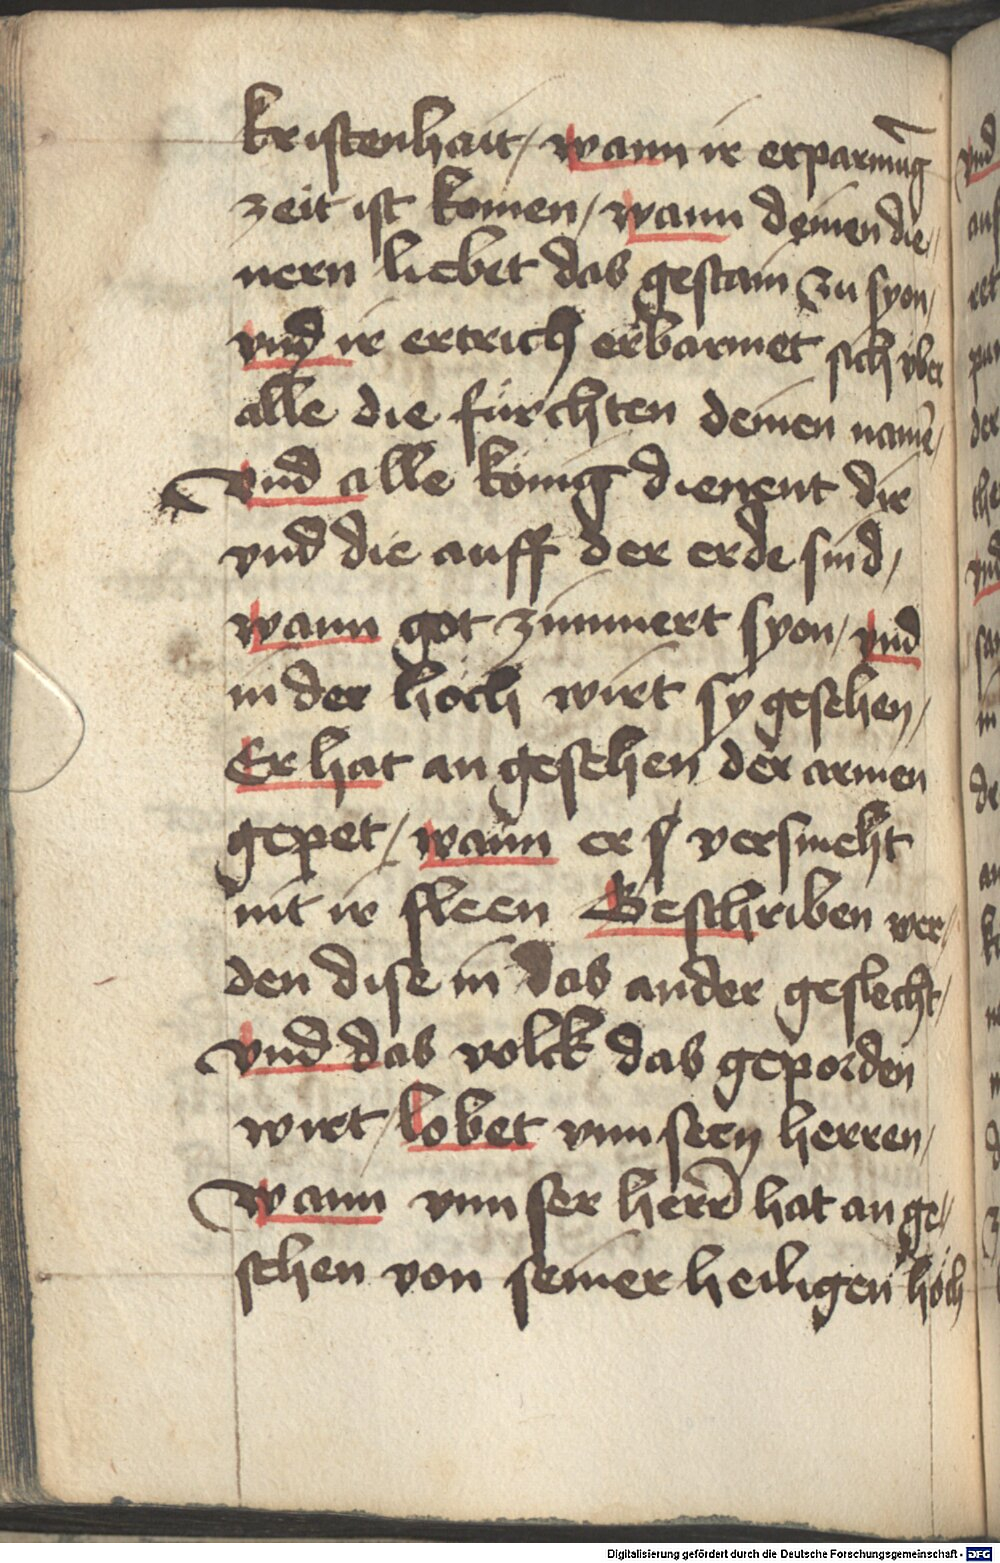 kristenhait / wann ir erparmūg
zeit ist komen / wann deinen die„
nern liebet das gestain zu syon /
vnd ir ertrich erbarmet sich vber
alle die fürchten deinen namē /
vnd alle könig dienent dir
vnd die auff der erde sind /
wann got zimmert syon / vnd
in der höch wirt sy gesehen /
Er hat angesehen der armen
gepet / wann er versmeht
nit ir fleen Beschriben wer„
den dise in das ander geslecht /
vnd das volck das geporden
wirt / lobet vnnsern herren /
wann vnnser herr hat an ge„
sehen von seiner heiligen höch
Digitalisierung gefördert durch die Deutsche Forschungsgemeinschaft - DFG